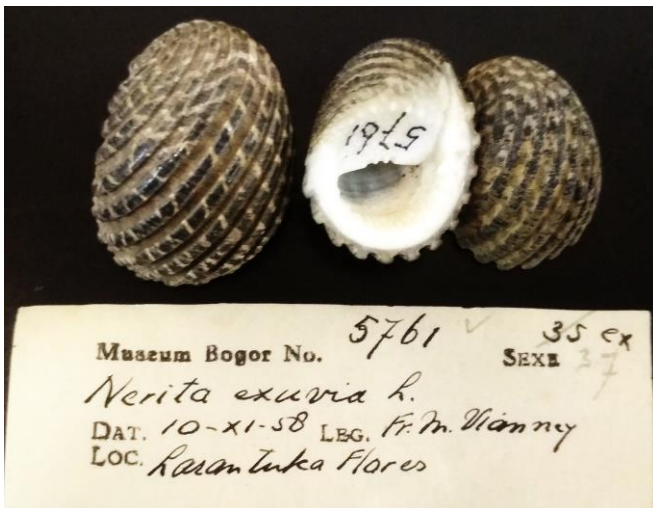 5761
Museum Bogor No. 5761 35 ex
SEXE 37
Nerita exuvia L.
DAT. 10-XI-58 LEG. Fr. M. Vianney
LOC. Larantuka Flores